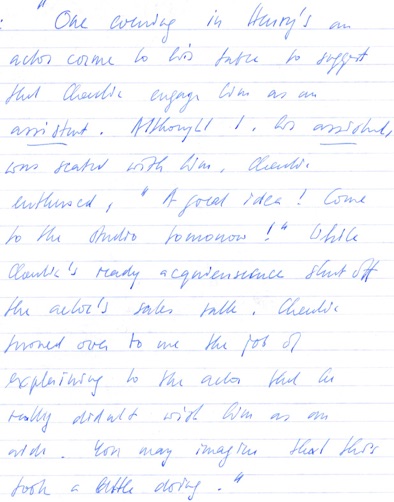 : "One evening in Henry's an
actor come to his table to suggest
that Charlie engage him as an
assistant. Althought I, his assistant,
was seated with him, Charlie
enthused, "A good idea! Come
to the studio tomorrow!" While
Charlie's ready acquienscence shut off
the actor's sales talk. Charlie
turned over to me the job of
explaining to the actor that he
really didn't wish him as an
aide. You may imagine that this
took a little doing."